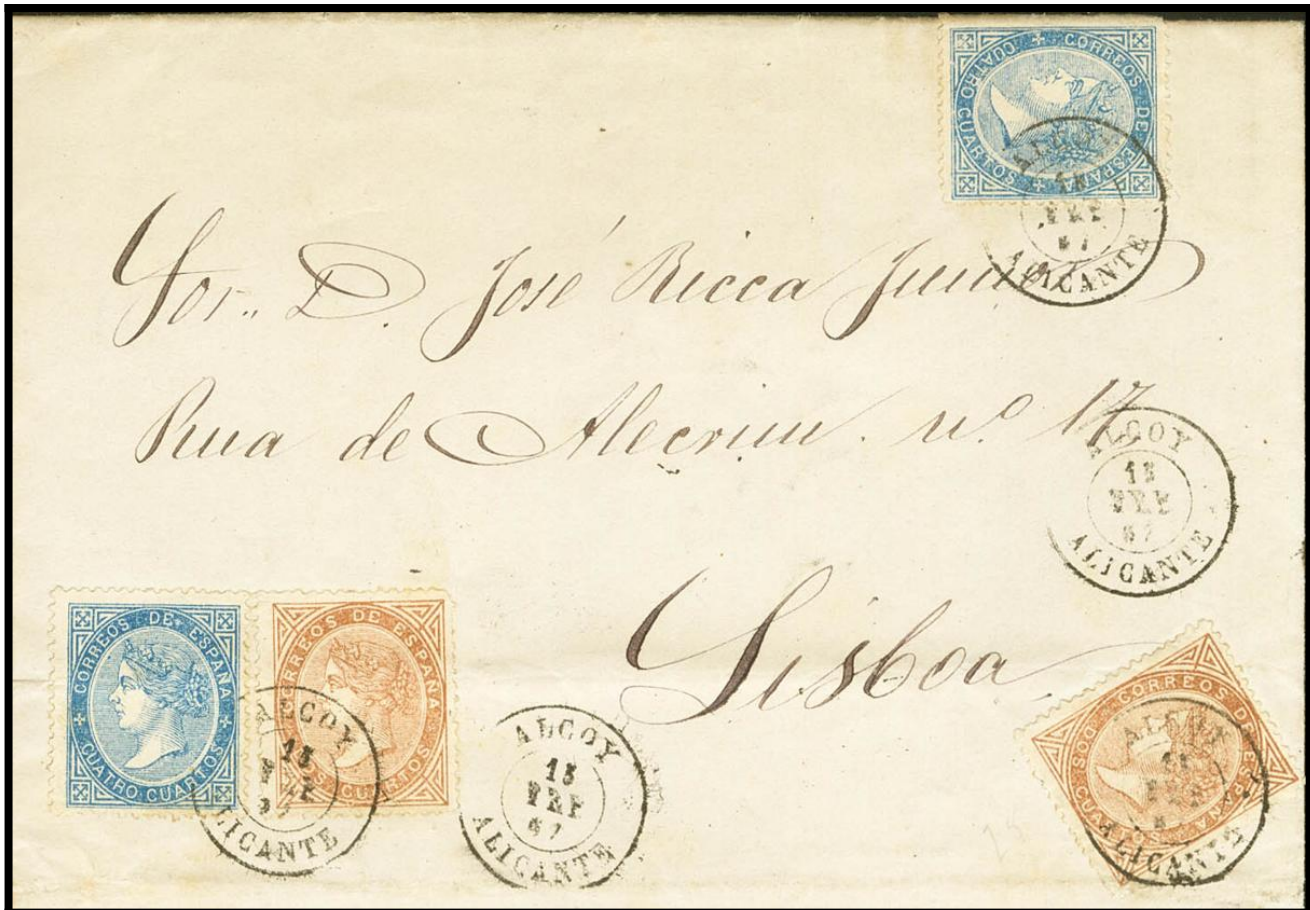 CORREOS DE ESPAÑA
CUATRO CUARTOS
ALCOY
FEB
ALICANTE
Sor.. D. José Ricca Junior
Rua de Alecrim. nº 17
ALCOY
15
FEB
67
ALICANTE
Lisboa
CORREOS DE ESPAÑA
CUATRO CUARTOS
CORREOS DE ESPAÑA
DOS CUARTOS
ALCOY
15
ALICANTE
ALCOY
15
FEB
67
ALICANTE
CORREOS DE ESPAÑA
DOS CUARTOS
ALCOY
FEB
ALICANTE